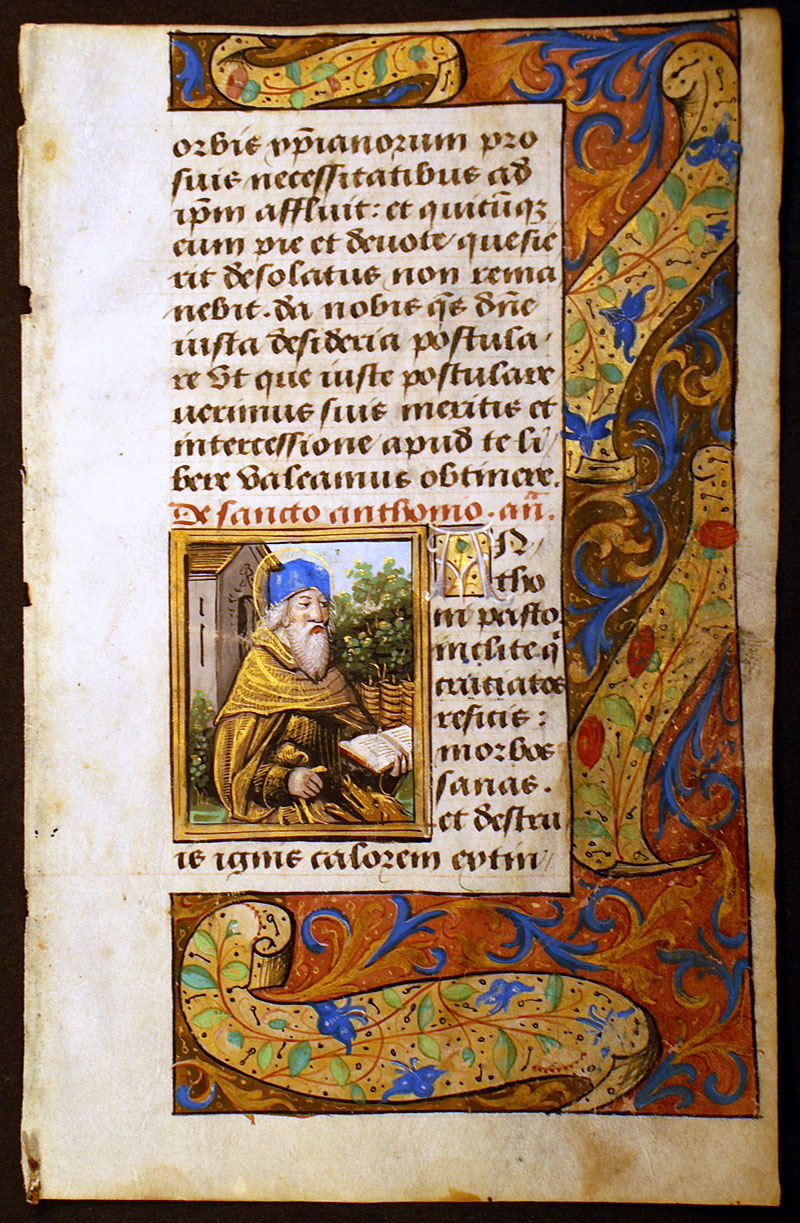 orbis xp̄ianorum pro
suis necessitatibus ad
ip̄m affluit: et quicūqꝫ
eum pie et deuote quesie
rit desolatus non rema
nebit. da nobis qs̄ dn̄e
iusta desideria postula
re vt que iuste postulare
uerimus suis meritis et
intercessione apud te li
bere valeamus obtinere.
De sancto anthonio. an̄.
AN
tho
ni pasto
inclite q̄
cruciatos
reficis:
morbos
sanas.
et destru
is ignis calorem extin